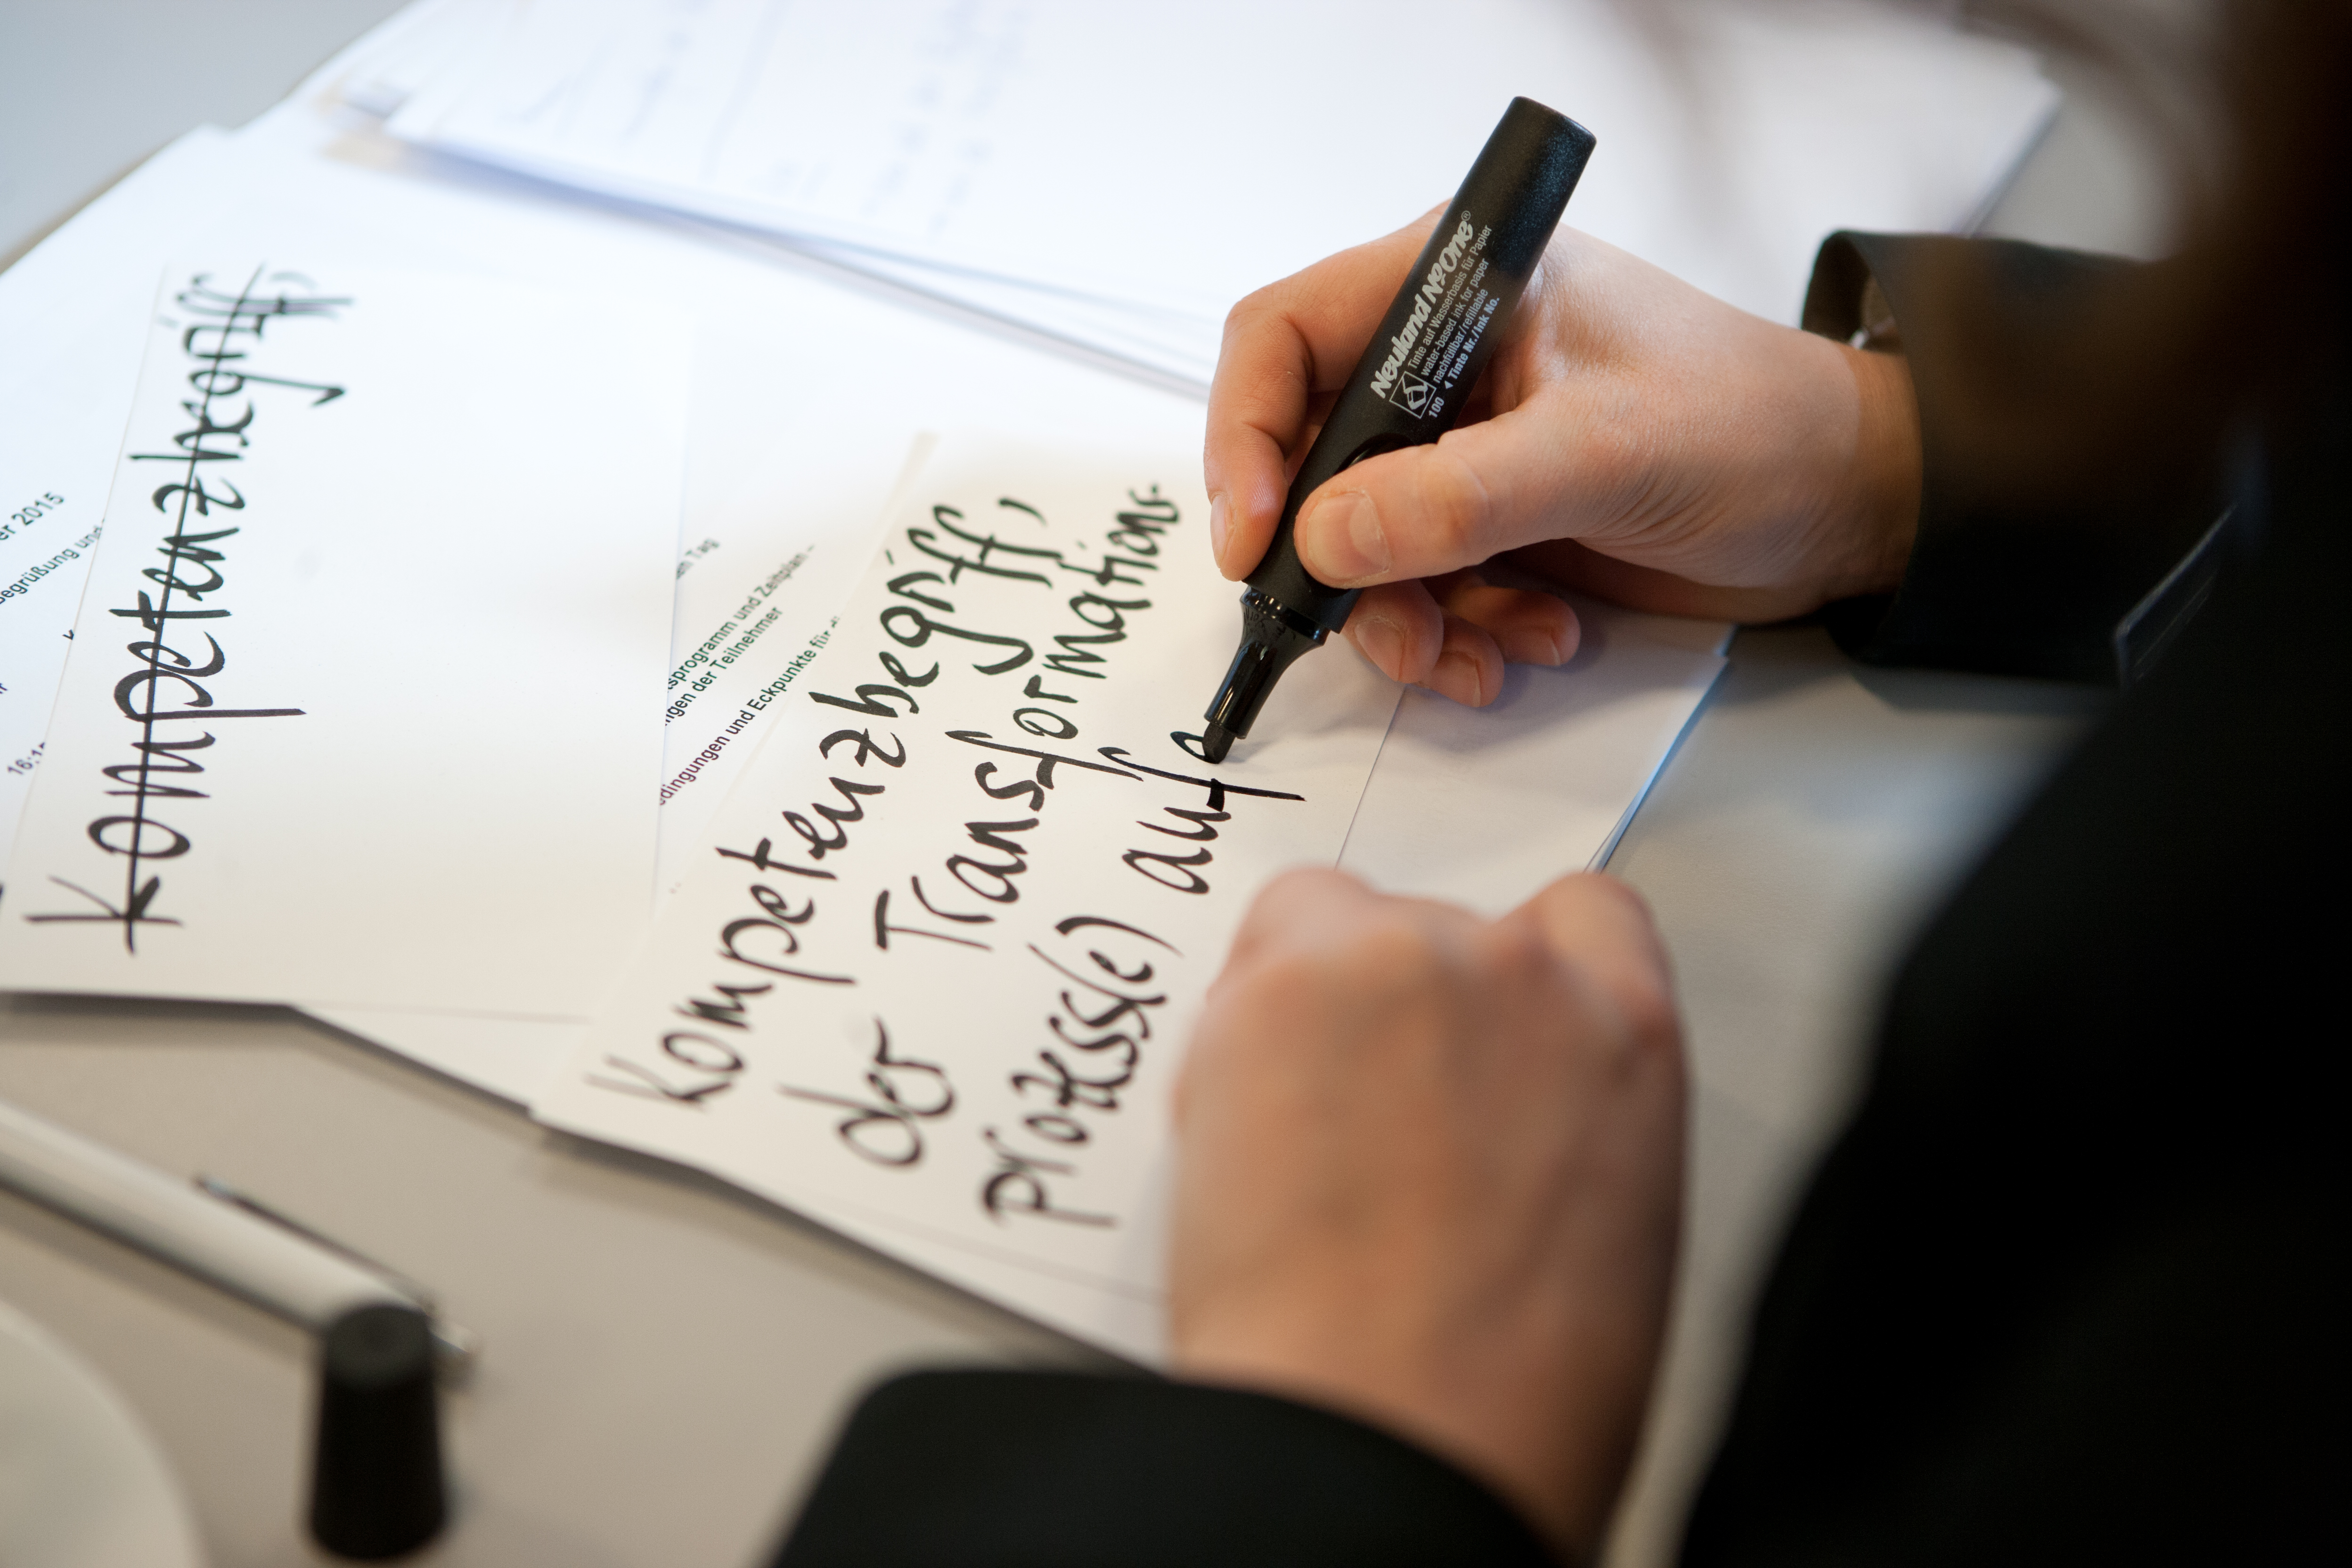 Kompetenzbegriff,
er 2015
egrüßung und
16:1
m Tag
sprogramm und Zeitplan –
ngen der Teilnehmer
dingungen und Eckpunkte für
Kompetenzbegriff,
der Transformations-
prozess(e) aufe
Neuland NºOne®
Tinte auf Wasserbasis für Papier
water-based ink for paper
nachfüllbar/refillable
100 ◂ Tinte Nr./Ink No.